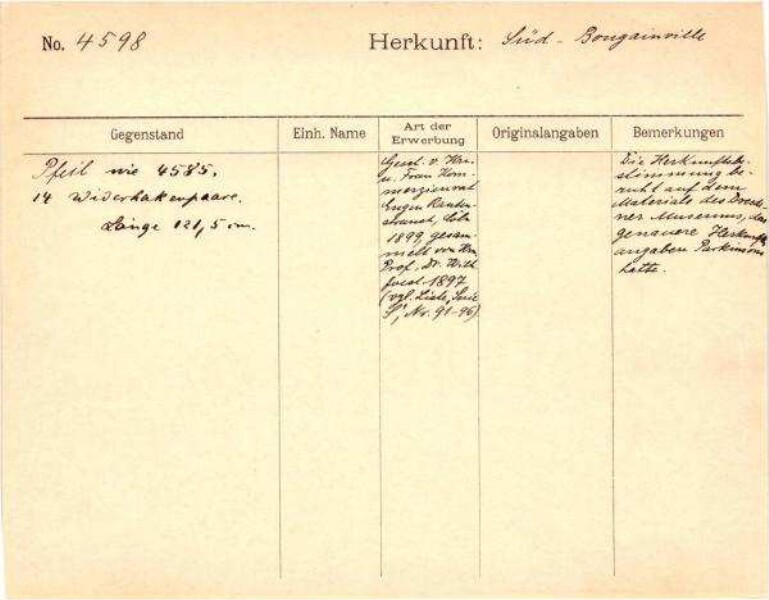 No. 4598
Herkunft: Süd-Bougainville
Gegenstand
Einh. Name
Art der Erwerbung
Originalangaben
Bemerkungen
Pfeil wie 4585.
14 Widerhakenpaare.
Länge 121,5 cm.
Gesch. v. Hrn.
u. Frau Kom-
merzienrat
Eugen Rauten-
strauch, Cöln
1899, gesam-
melt von Hrn
Prof. Dr. Wilh.
Joest 1897
(vgl. Liste, Serie
S, Nr. 91-96)
Die Herkunftsbe-
stimmung be-
ruht auf dem
Materiale des Dresd-
ner Museums, das
genauere Herkunfts-
angaben Parkinsons
hatte.